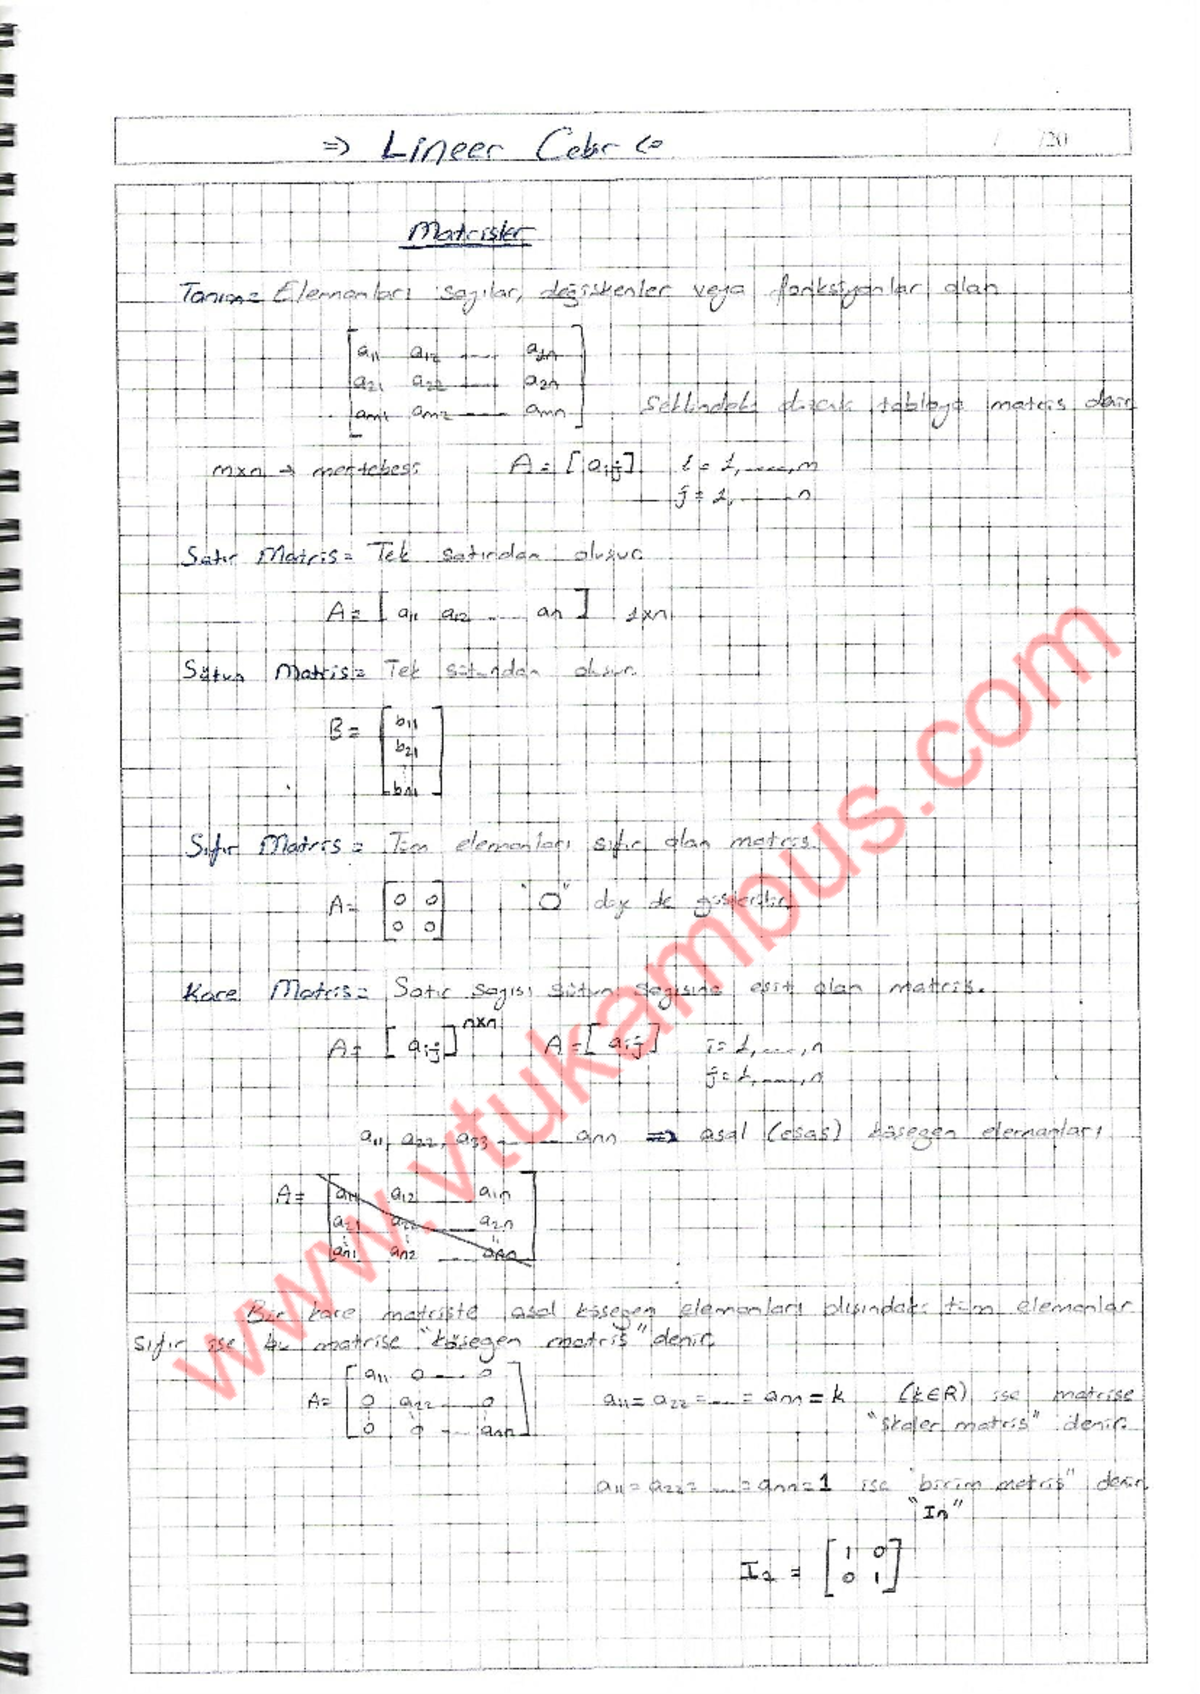 ⇒ Lineer Cebir ⇐
/ /20
Matrisler
Tanım= Elemanları sayılar, değişkenler veya fonksiyonlar olan
[ a11 a12 ---- a2n
a21 a22 ---- a2n
am1 am2 ---- amn ] şeklindeki dizək tabloya matris denir
mxn → mertebesi A = [aij] i = 1,----,m
j = 1,----n
Satır Matris= Tek satırdan oluşur
A = [ a11 a12 ---- an ] 1xn
Sütun Matris= Tek sütundan oluşur.
B = [ b11
b21
⋮
bn1 ]
Sıfır Matris = Tüm elemanları sıfır olan matris.
A = [ 0 0 "O" diye de gösterilir.
0 0 ]
Kare Matris= Satır sayısı sütun sayısına eşit olan matris.
A = [aij]nxn A = [aij] i = 1,----,n
j = 1,----,n
a11, a22, a33 ---- ann ⇒ asal (esas) köşegen elemanları
A = [ a11 a12 ---- a1n
a21 a22 ---- a2n
⋮ ⋮ ⋮
an1 an2 ---- ann ]
Bir kare matriste asal köşegen elemanları dışındaki tüm elemanlar
sıfır ise bu matrise "köşegen matris" denir.
A = [ a11 0 ---- 0
0 a22 ---- 0 a11 = a22 = ---- = ann = k (k∈R) ise matrise
0 0 ---- ann ] "skaler matris" denir.
a11 = a22 = ---- = ann = 1 ise "birim matris" denir.
"In"
I2 = [ 1 0
0 1 ]
www.vtukampus.com